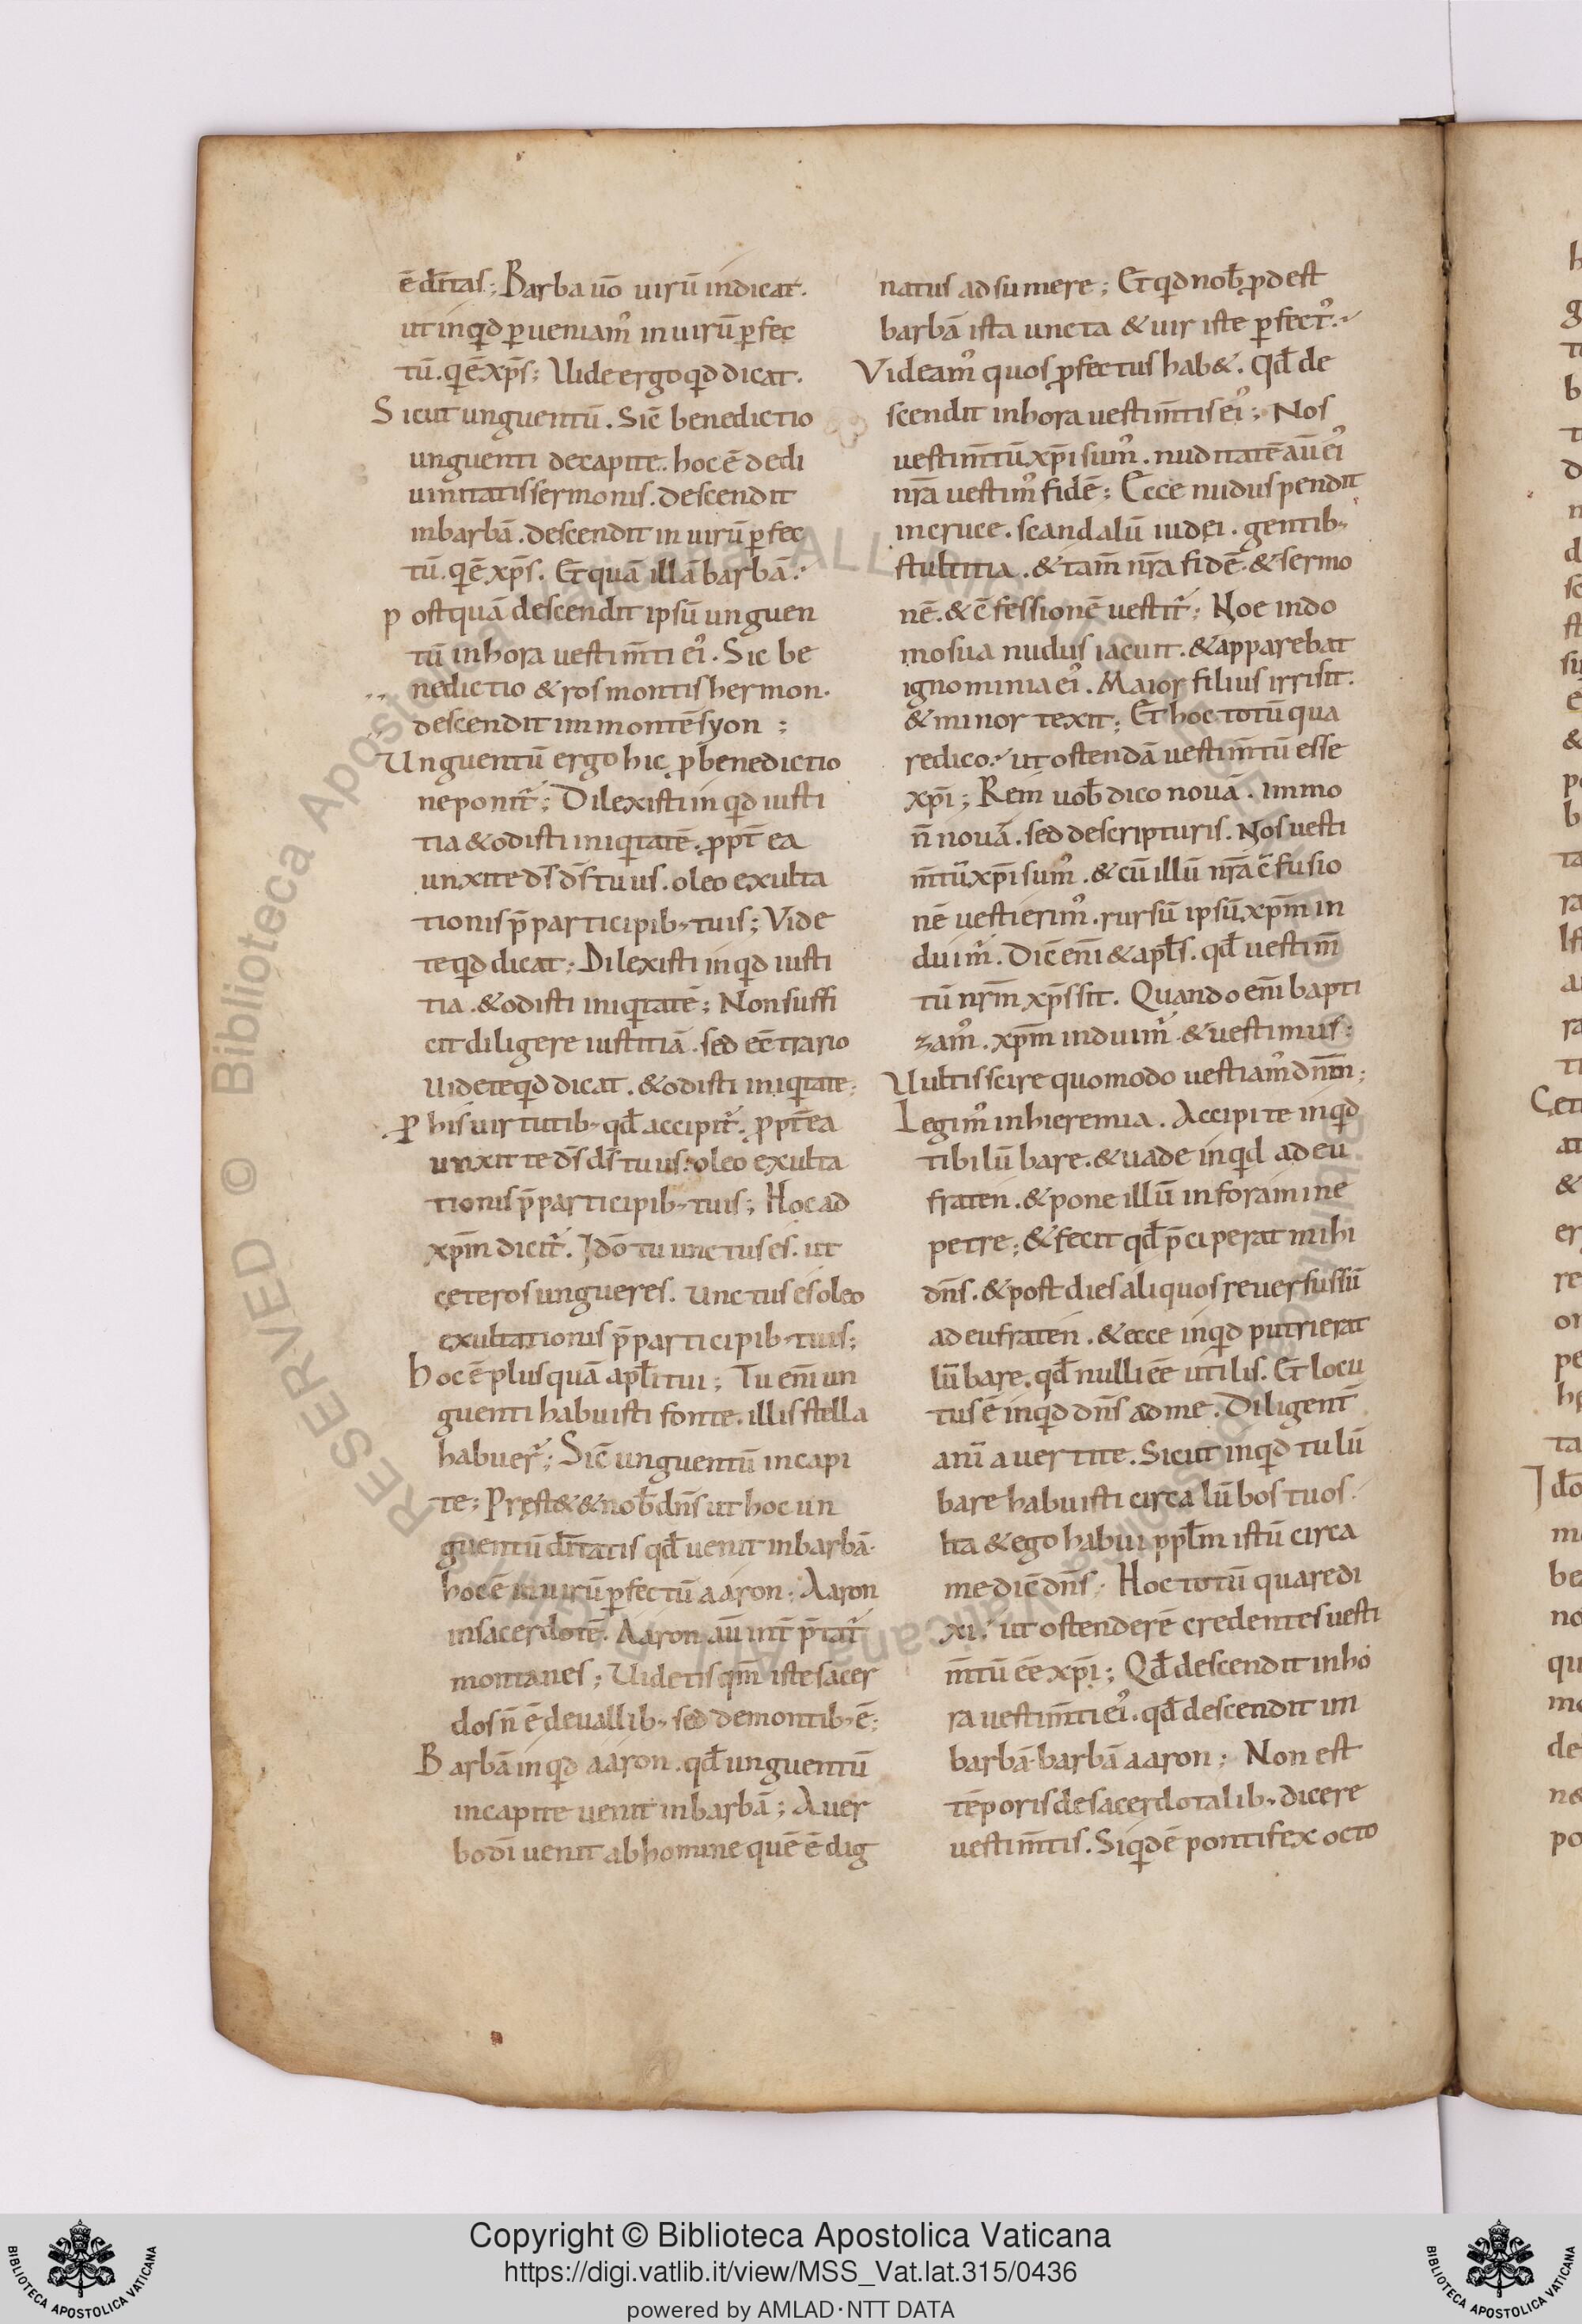 ē dīntas; Barba uō uirū indicat.
ut inqd puueniam᾽ in uirū pfec
tū. qē xp̄s; Uide ergo qd dicat.
Sicut unguentū. Sic̄ benedictio
unguenti decapite. hoc ē dedi
uinitatis sermonis. descendit
inbarbā. descendit in uirū pfec
tū. qē xp̄s. Et quā illā barbā.
postquā descendit ipsū unguen
tū inhora uestim̄ti ei᾽. Sic be
nedictio & ros montis hermon.
descendit immontē syon ;
Unguentū ergo hic p benedictio
ne ponit᾽; Dilexisti inqd iusti
tia & odisti iniqitatē. ppt̄ ea
unxit te d̄s d̄s tuus. oleo exulta
tionis p̄ participib; tuis; Vide
te qd dicat; Dilexisti inqd iusti
tia. & odisti iniqitatē; Non suffi
cit diligere iustitiā. sed ec̄trario
Uidete qd dicat. & odisti iniqitate;
P his uirtutib; qd̄ accipit᾽. ppt̄ ea
unxit te d̄s d̄s tuus. oleo exulta
tionis p̄ participib; tuis; Hoc ad
xp̄m dicit᾽. Idō tu unctus es. ut
cęteros ungueres. Unctus es oleo
exultationis p̄ participib; tuis;
Hoc ē plus quā apl̄i tui; Tu enī un
guenti habuisti fonte. illi stella
habuer᾽; Sic̄ unguentū incapi
te; Pręst& & nob̄ dn̄s ut hoc un
guentū dīntatis qd̄ uenit inbarbā.
hoc ē in uirū pfectū aaron; Aaron
insacerdotē. Aaron aū int̄ p̄tat᾽
montanes; Uidetis qm̄ iste sacer
dos n̄ ē deuallib; sed demontib; ē;
Barbā inqd aaron. qd̄ unguentū
incapite uenit inbarbā; Auer
bo dī uenit abhomine quē ē dig
natus adsumere; Et qd nob̄ pdest
barbā ista uncta & uir iste pfect᾽.
Videam᾽ quos pfectus hab&. Qd̄ de
scendit inhora uestim̄tis ei᾽; Nos
uestim̄tū xp̄i sum᾽. nuditatē aū ei᾽
nr̄a uestim᾽ fidē; Ecce nudus pendit
incruce. scandalū iudei. gentib;
stultitia. & tam̄ nr̄a fidē. & sermo
nē. & c̄fessionē uestit᾽; Noe indo
mo sua nudus iacuit. & apparebat
ignominia ei᾽. Maior filius irrisit.
& minor texit; Et hoc totū qua
re dico. ut ostendā uestim̄tū esse
xp̄i; Rem uob̄ dico nouā. immo
n̄ nouā. sed descripturis. Nos uesti
m̄tū xp̄i sum᾽. & cū illū nr̄a c̄fusio
nē uestierim᾽. rursū ipsū xp̄m in
duim᾽. Dic̄ enī & apl̄s. qd̄ uestim̄
tū nr̄m xp̄s sit. Quando enī bapti
zam᾽. xp̄m induim᾽ & uestimus;
Uultis scire quomodo uestiam᾽ dn̄m;
Legim᾽ inhieremia. Accipi te inqd
tibi lū bare. & uade inqd ad eu
fraten. & pone illū inforamine
petre; & fecit qd̄ p̄ciperat mihi
dn̄s. & post dies aliquos reuersus sū
ad eufraten. & ecce inqd putrierat
lū bare. qd̄ nulli eē utilis. Et locu
tus ē inqd dn̄s ad me. Diligent̄
anī auertite. Sicut inqd tu lū
bare habuisti circa lūbos tuos.
Ita & ego habui ppl̄m istū circa
me dic̄ dn̄s; Hoc totū quare di
xi. ut ostenderē credentes uesti
m̄tū eē xp̄i; Qd̄ descendit inho
ra uestim̄ti ei᾽. qd̄ descendit im
barbā. barbā aaron; Non est
tēporis desacerdotalib; dicere
uestim̄tis. Siqdē pontifex octo
Copyright © Biblioteca Apostolica Vaticana
https://digi.vatlib.it/view/MSS_Vat.lat.315/0436
powered by AMLAD·NTT DATA